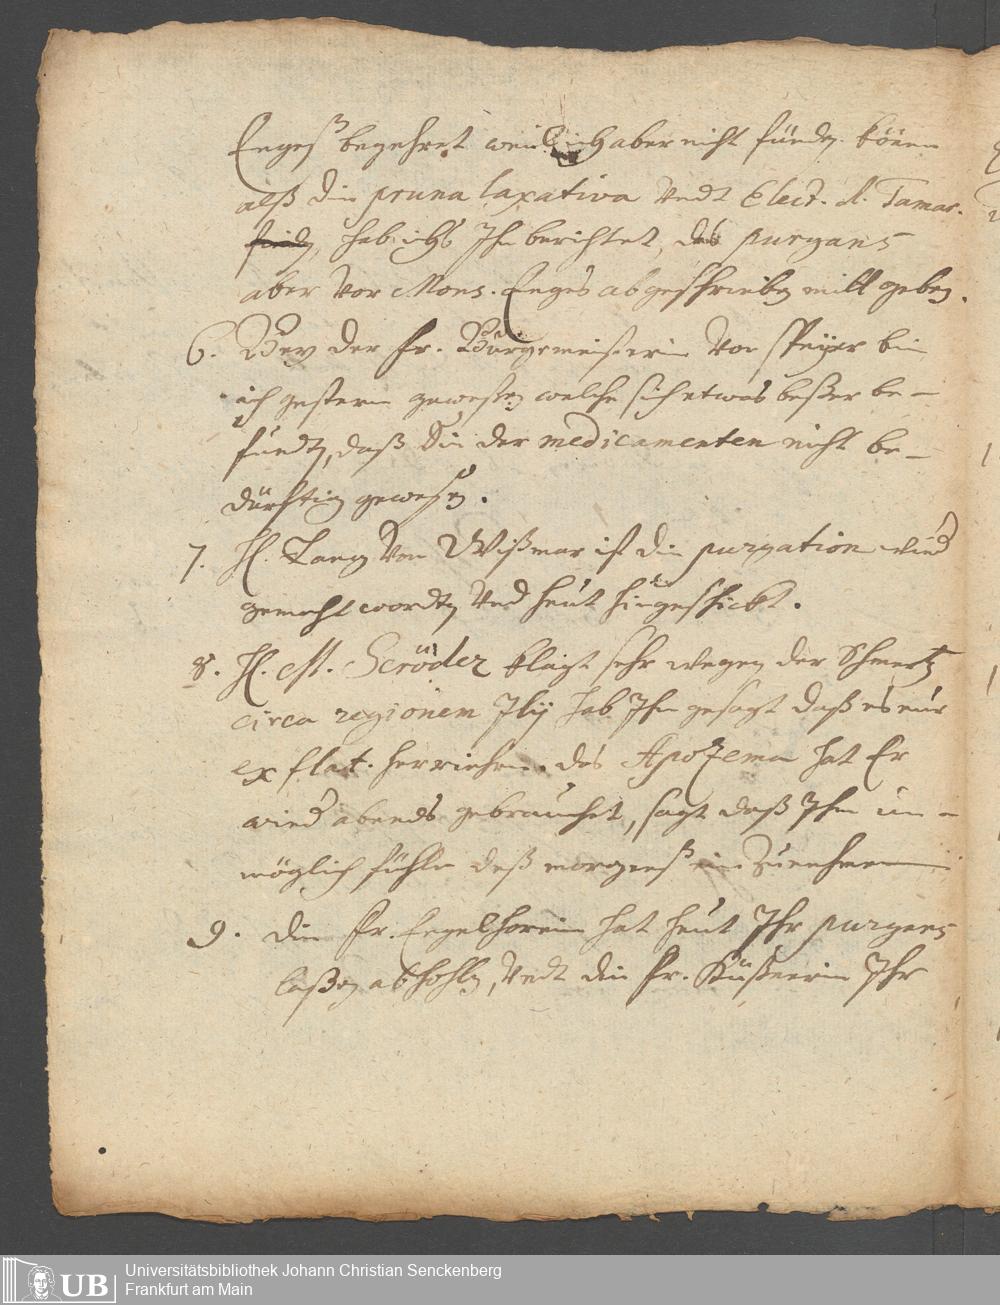 Enges begehret weil ich aber nicht finden können
alß die pruna laxativa undt Elect. d. Tamar.
hab ichs Ihr berichtet, das purgans
aber vor Mons. Enges abgeschrieben mitt geben.
6. Bey der Fr. Burgermeisterin von Speyer bin
ich gestern gewesen welche sich etwas beßer be-
findt, daß Sie der medicamenten nicht be-
dürfftig gewesen.
7. H. Lang von Wißmar ist die purgation wied
gemacht worden und heut hingeschickt.
8. H. M. Scröder klagt sehr wegen der Schmertz
circa regionem Ilij hab Ihm gesagt daß es nur
ex flat. herrühre. das Apozema hat Er
wied abends gebrauchet, sagt daß Ihm un-
möglich fühle deß morgenß ein Zunehmen
9. die Fr. Engelhornin hat heut Ihr purgans
laßen abhohlen, undt die Fr. Küßnerin Ihr
Universitätsbibliothek Johann Christian Senckenberg
UB
Frankfurt am Main